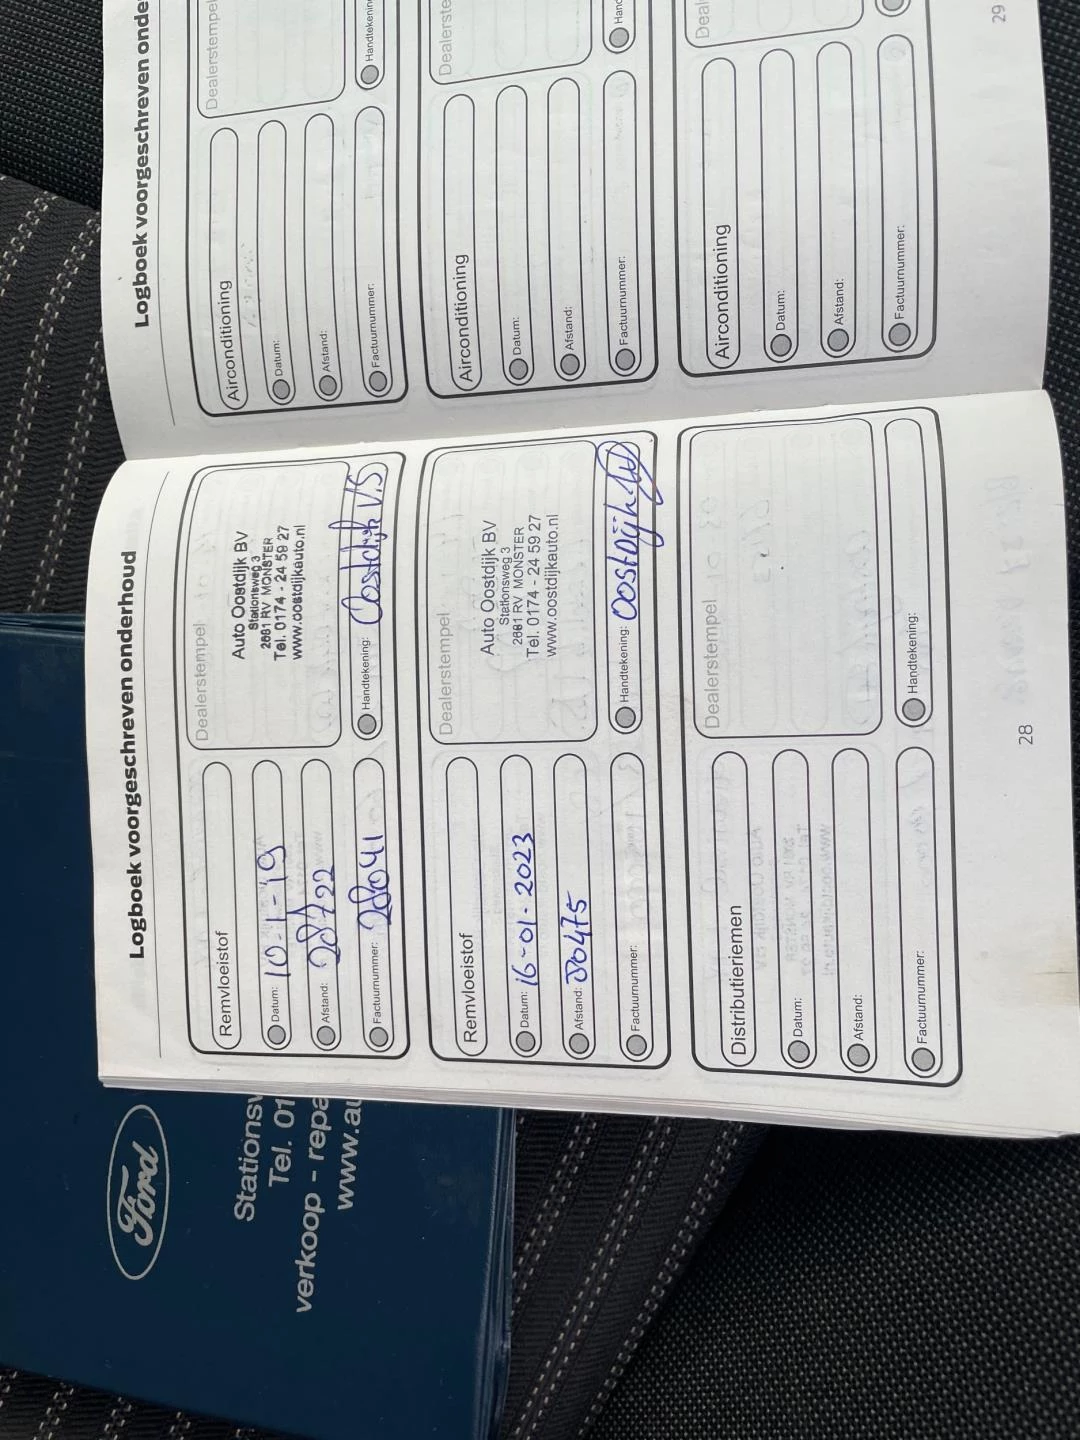 Logboek voorgeschreven onderhoud
Remvloeistof
Datum: 10-1-19
Afstand: 28722
Factuurnummer: 28041
Dealerstempel
Auto Oostdijk BV
Stationsweg 3
2681 RV MONSTER
Tel. 0174 - 24 59 27
www.oostdijkauto.nl
Handtekening: Oostdijk V.S
Remvloeistof
Datum: 16-01-2023
Afstand: 80475
Factuurnummer:
Dealerstempel
Auto Oostdijk BV
Stationsweg 3
2681 RV MONSTER
Tel. 0174 - 24 59 27
www.oostdijkauto.nl
Handtekening: Oostdijk
Distributieriemen
Datum:
Afstand:
Factuurnummer:
Dealerstempel
Handtekening:
28
Logboek voorgeschreven onde
Airconditioning
Datum:
Afstand:
Factuurnummer:
Dealerstempel
Handtekenin
Airconditioning
Datum:
Afstand:
Factuurnummer:
Dealerste
Hand
Airconditioning
Datum:
Afstand:
Factuurnummer:
Deal
29
Ford
Stationsv
Tel. 01
verkoop - repa
www.au